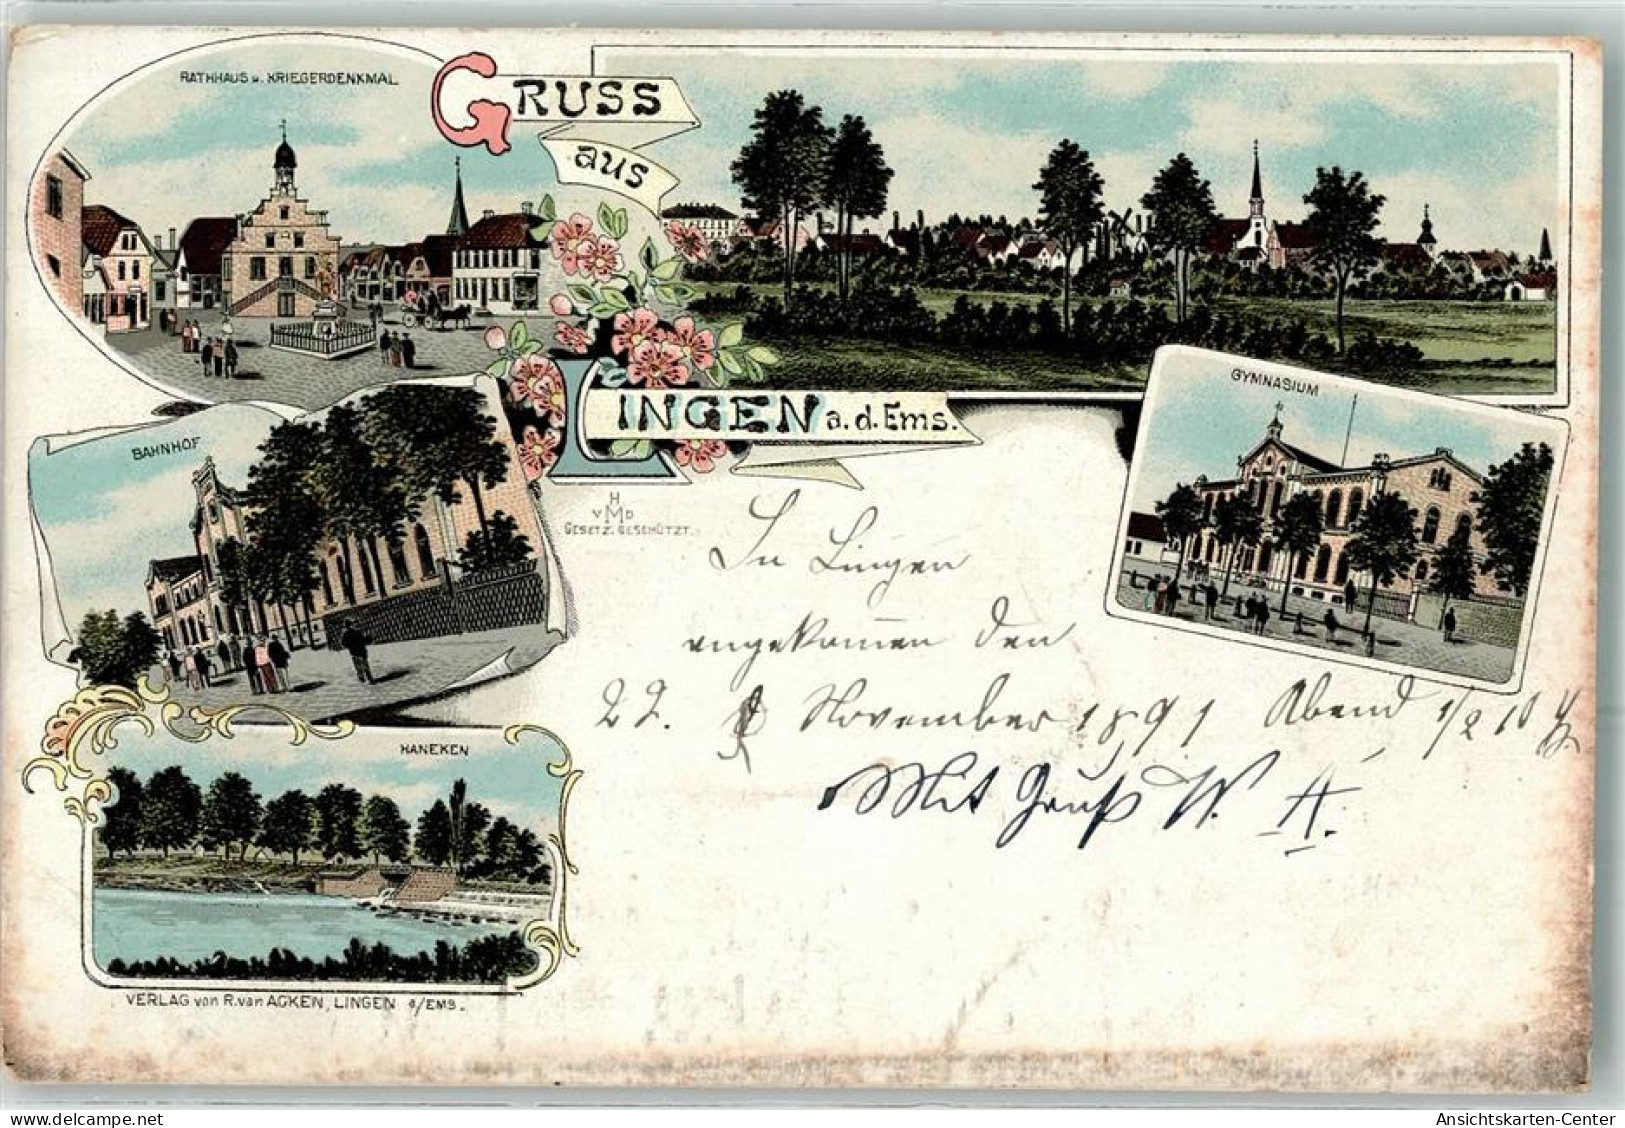 RATHHAUS u. KRIEGERDENKMAL
GRUSS
aus
LINGEN a. d. Ems.
GYMNASIUM
BAHNHOF
H
V M D
GESETZ. GESCHÜTZT.
In Lingen
angekommen den
22. November 1897 Abend 1/2 10
Mit Gruß W. A.
HANEKEN
VERLAG von R. van ACKEN, LINGEN a/EMS.
Ansichtskarten-Center